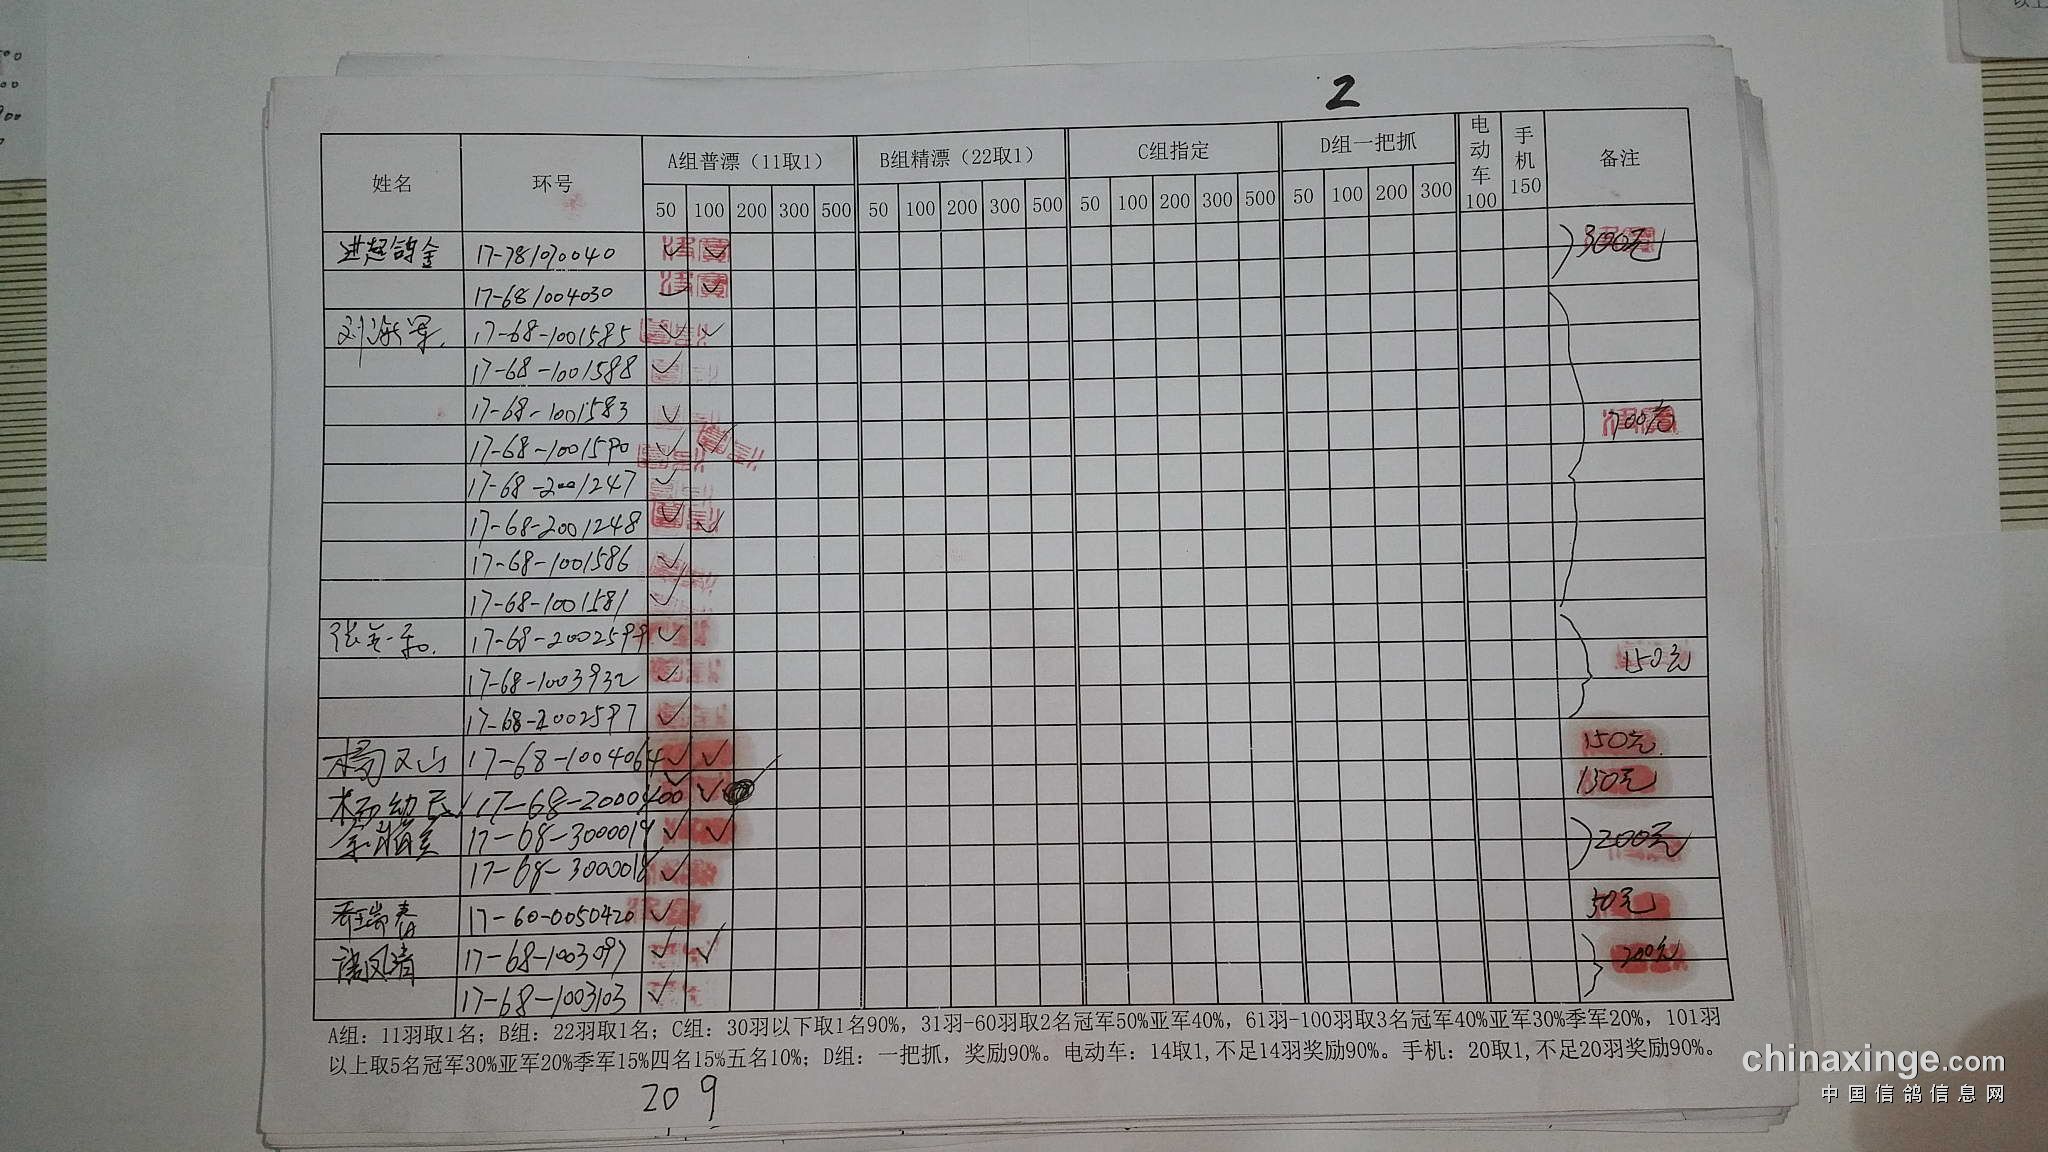 2
姓名 环号 A组普漂（11取1） B组精漂（22取1） C组指定 D组一把抓 电动车100 手机150 备注
50 100 200 300 500 50 100 200 300 500 50 100 200 300 500 50 100 200 300
进超鸽舍 17-781070040 ✓ ✓ 300元
17-681004030 ✓ ✓
17-68-1001585 ✓ ✓
17-68-1001588 ✓
17-68-1001583 ✓
17-68-1001590 ✓ ✓ 700元
17-68-2001247 ✓
17-68-2001248 ✓ ✓
17-68-1001586 ✓
17-68-1001581 ✓
17-68-2002599 ✓
17-68-1003932 ✓ 150元
17-68-2002597 ✓
杨又山 17-68-1004064 ✓ ✓ 150元
杨幼民 17-68-2000400 ✓ ✓ 150元
17-68-3000019 ✓ ✓ 200元
17-68-3000018 ✓
17-60-0050420 ✓ 50元
诸凤清 17-68-1003097 ✓ ✓ 200元
17-68-1003103 ✓
A组：11羽取1名；B组：22羽取1名；C组：30羽以下取1名90%，31羽-60羽取2名冠军50%亚军40%，61羽-100羽取3名冠军40%亚军30%季军20%，101羽
以上取5名冠军30%亚军20%季军15%四名15%五名10%；D组：一把抓，奖励90%。电动车：14取1,不足14羽奖励90%。手机：20取1,不足20羽奖励90%。
20 9
chinaxinge.com
中国信鸽信息网